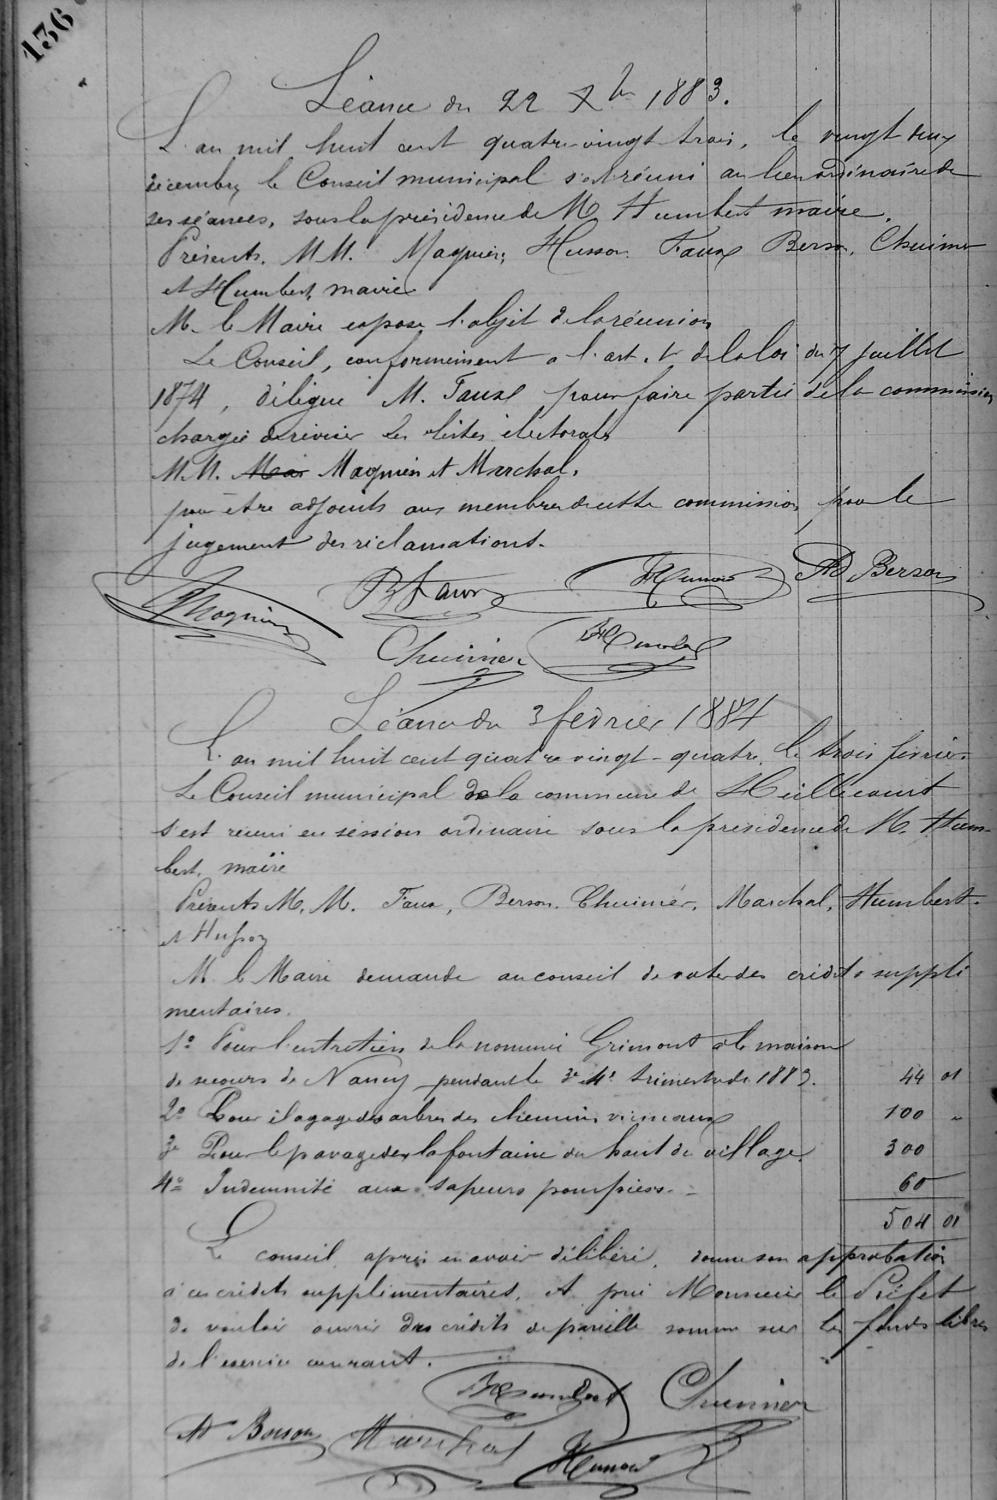 136
Séance du 22 Xbre 1883.
L'an mil huit cent quatre-vingt-trois, le vingt deux
décembre, le Conseil municipal s'est réuni au lieu ordinaire de
ses séances, sous la présidence de M. Humbert maire.
Présents. MM. Magnien, Husson, Faux, Berson, Thuimer
et Humbert, maire
M. le Maire expose l'objet de la réunion
Le Conseil, conformément a l'art. 1r de la loi du 7 juillet
1874, délègue M. Faux pour faire partie de la commission
chargée de réviser les listes électorales
M.M. Mar Magnien et Marchal.
pour être adjoints aux membres de cette commission, pour le
jugement des réclamations.
Magnien Faux Husson Ad Berson
Thuimer Humbert
Séance du 3 février 1884
L'an mil huit cent quatre vingt-quatre, le trois février.
Le Conseil municipal de la commune de Heillecourt
s'est réuni en session ordinaire sous la présidence de M. Hum-
bert, maire
Présents M.M. Faux, Berson, Thuimer, Marchal, Humbert.
et Husson
M. le Maire demande au conseil de voter des crédits supplé
mentaires.
1° Pour l'entretien de la nommée Grimont à la maison
de secours de Nancy pendant le 3e 4e trimestre de 1883. 44 01
2° Pour élagage des arbres des chemins vicinaux 100 "
3e Pour le pavage de la fontaine du haut du village. 300
4° Indemnité aux sapeurs pompiers. 60
504 01
Le conseil, après en avoir délibéré, donne son approbation
à ces crédits supplémentaires, et prie Monsieur le Préfet
de vouloir ouvrir des crédits de pareille somme sur les fonds libres
de l'exercice courant.
Humbert Thuimer
Ad Berson Marchal Husson